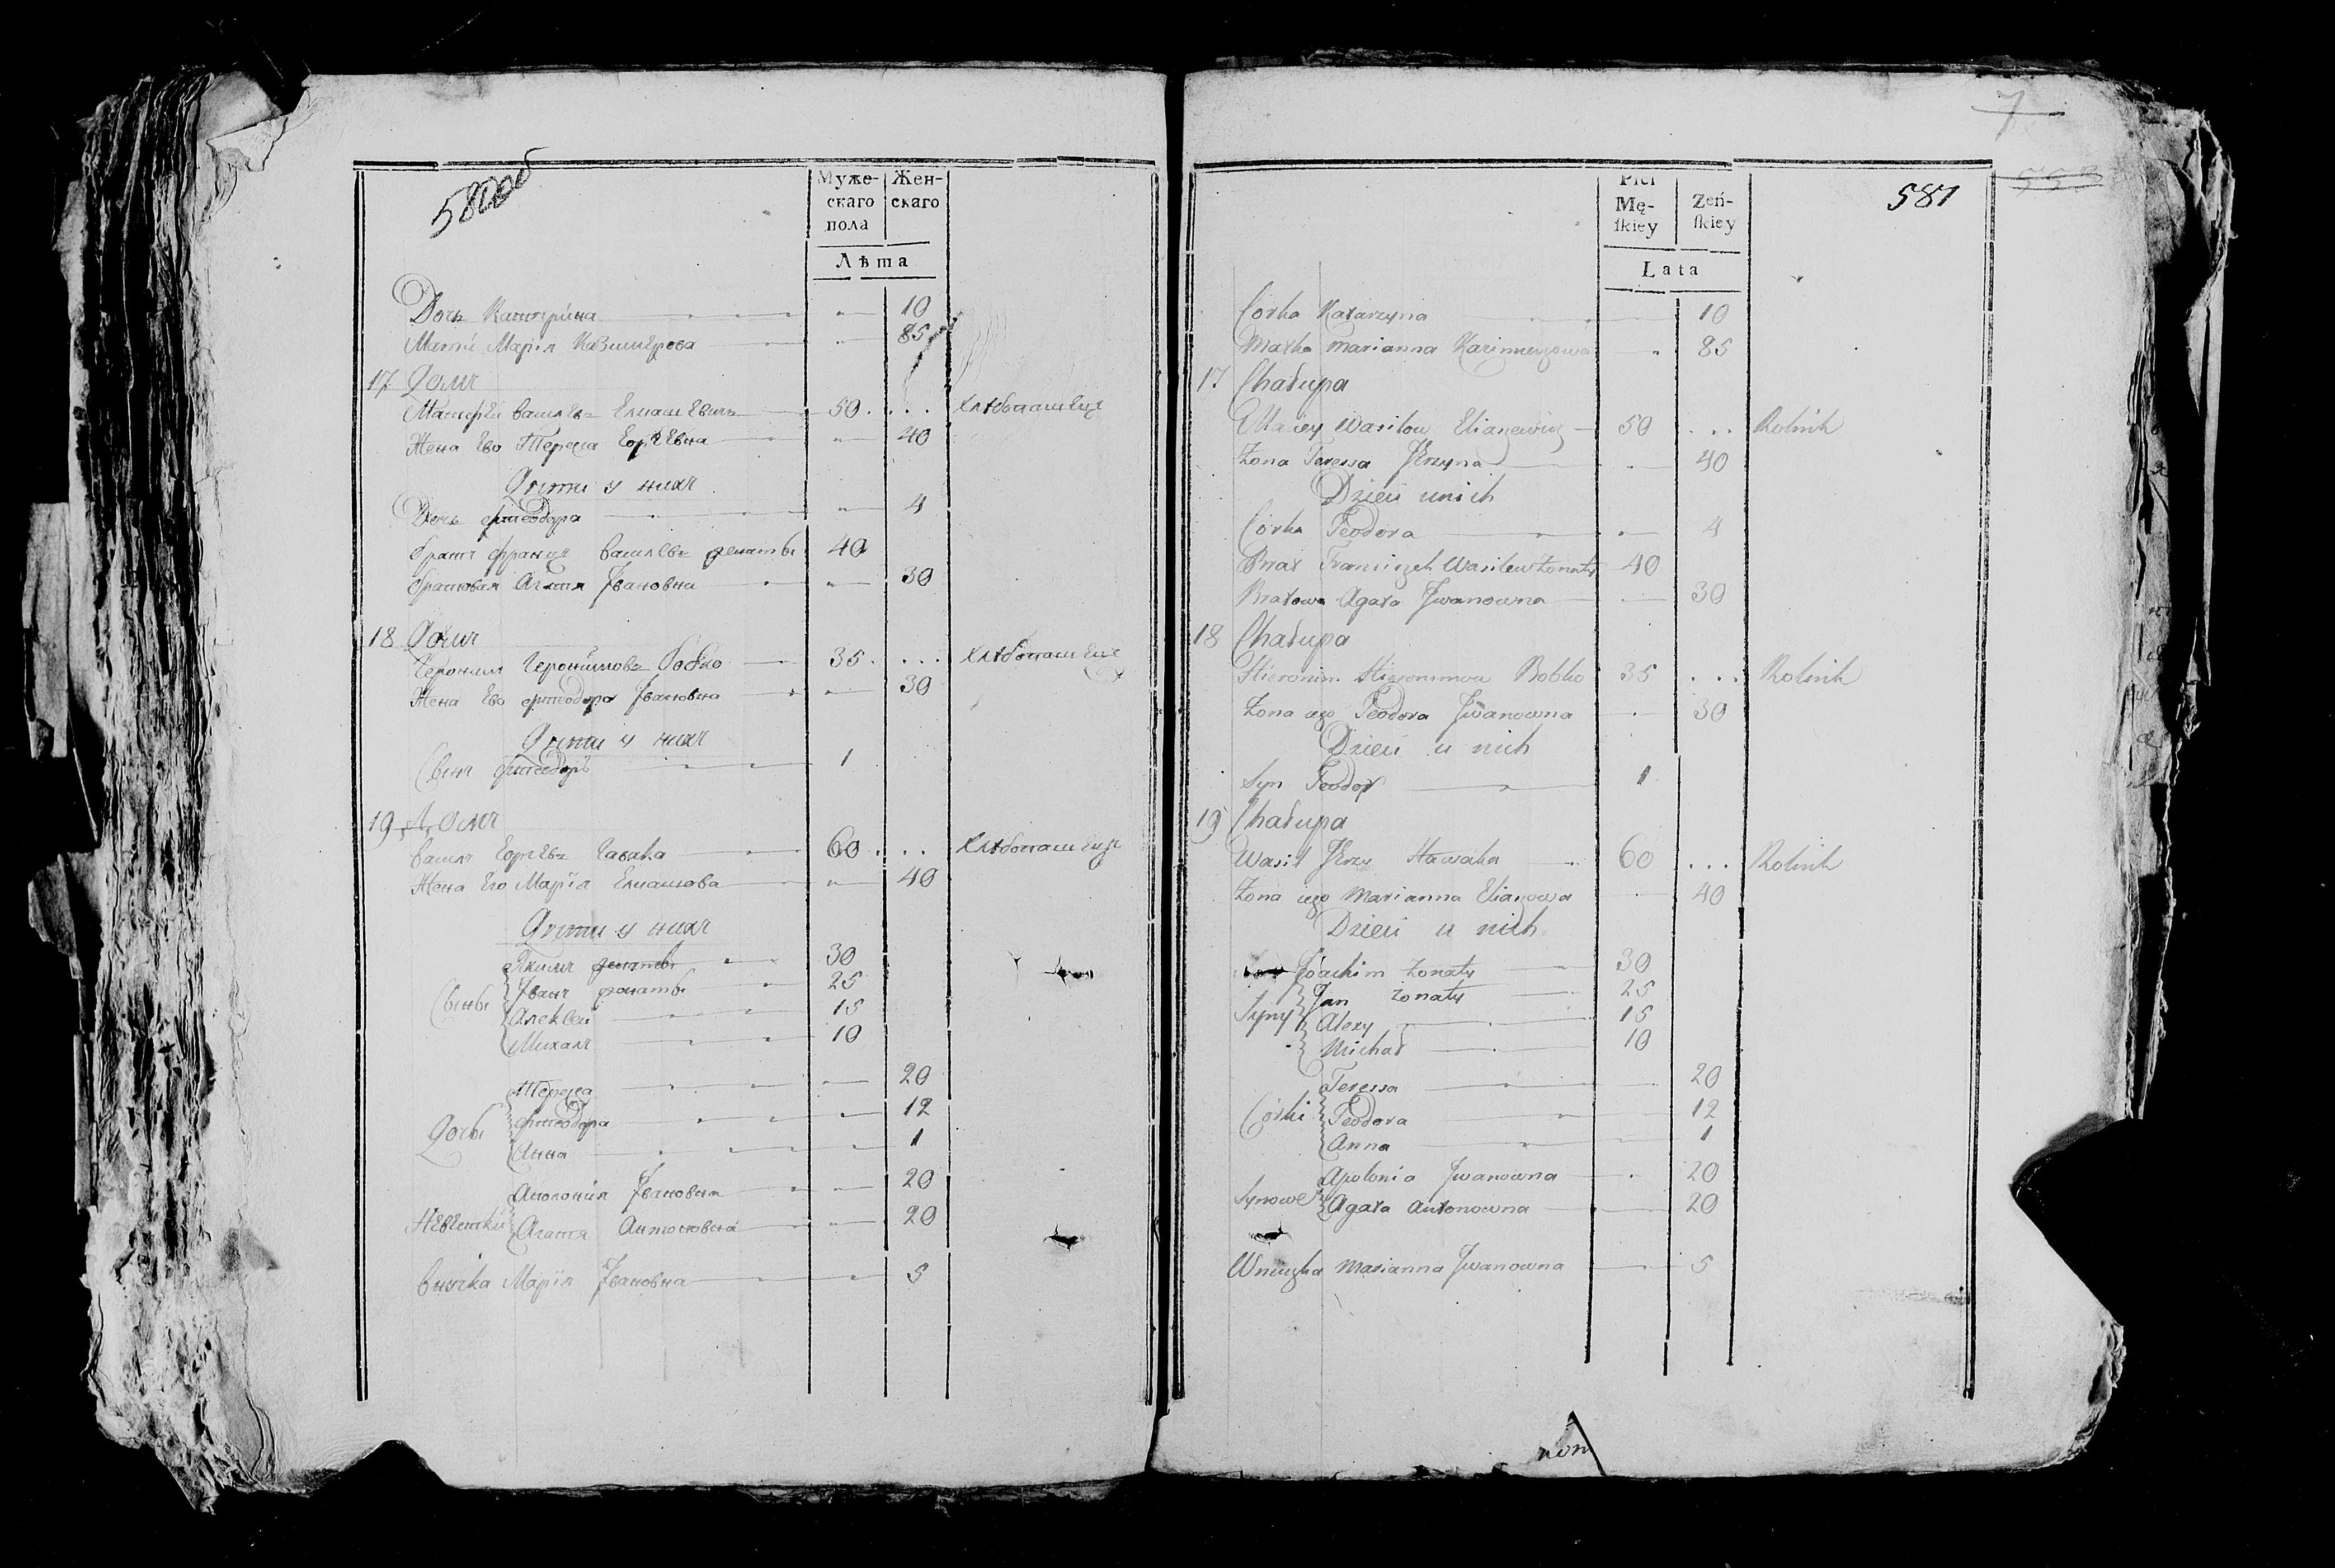 580об
Муже- Жен-
скаго скаго
пола
Лѣта
Дочь Катерина 10
Мати Марія Казимерова 85
17 Домъ
Матфей Василевъ Елиашевичъ 50 . . . хлѣбопашецъ
Жена Ево Тереса Еориевна 40
Дѣти у нихъ
Дочь Фтеодора 4
братъ Францъ Василевъ женаты 40
братовая Агатя Ивановна 30
18 Домъ
Героним Геронимовъ Бобко 35 . . . хлѣбопашецъ
Жена Ево Фтеодора Ивановна 30
Дѣти у нихъ
Сынъ Фтеодоръ 1
19 Домъ
Василъ Еориевъ Гавака 60 . . . хлѣбопашецъ
Жена Его Марія Елиашова 40
Дѣти у нихъ
Якимъ женаты 30
Иванъ женаты 25
Сыны Алексей 15
Михалъ 10
Тереса 20
Дочы Фтеодора 12
Анна 1
Аполонія Ивановна 20
Невестки Агатя Антоновна 20
Внучка Марія Ивановна 5
7
581
Płci
Mę- Zeń-
ſkiey ſkiey
Lata
Corka Katarzyna 10
Matka Marianna Kazimierzowa 85
17 Chałupa
Maciey Wasilow Eliaszewicz 50 . . . Rolnik
Zona Teressa Jerzyna 40
Dzieci unich
Córka Teodora 4
Brat Franciszek Wasilew żonaty 40
Bratowa Agata Jwanowna 30
18 Chałupa
Hieronim Hieronimow Bobko 35 . . . Rolnik
Zona iego Teodora Jwanowna 30
Dzieci u nich
Syn Teodor 1
19 Chałupa
Wasil Jerzy Hawaka 60 . . . Rolnik
Zona iego Marianna Eliaszowa 40
Dzieci u nich
Joachim żonaty 30
Jan żonaty 25
Syny Alexy 15
Michał 10
Teressa 20
Córki Teodora 12
Anna 1
Apolonia Jwanowna 20
Synowe Agata Antonowna 20
Wnuczka Marianna Jwanowna 5